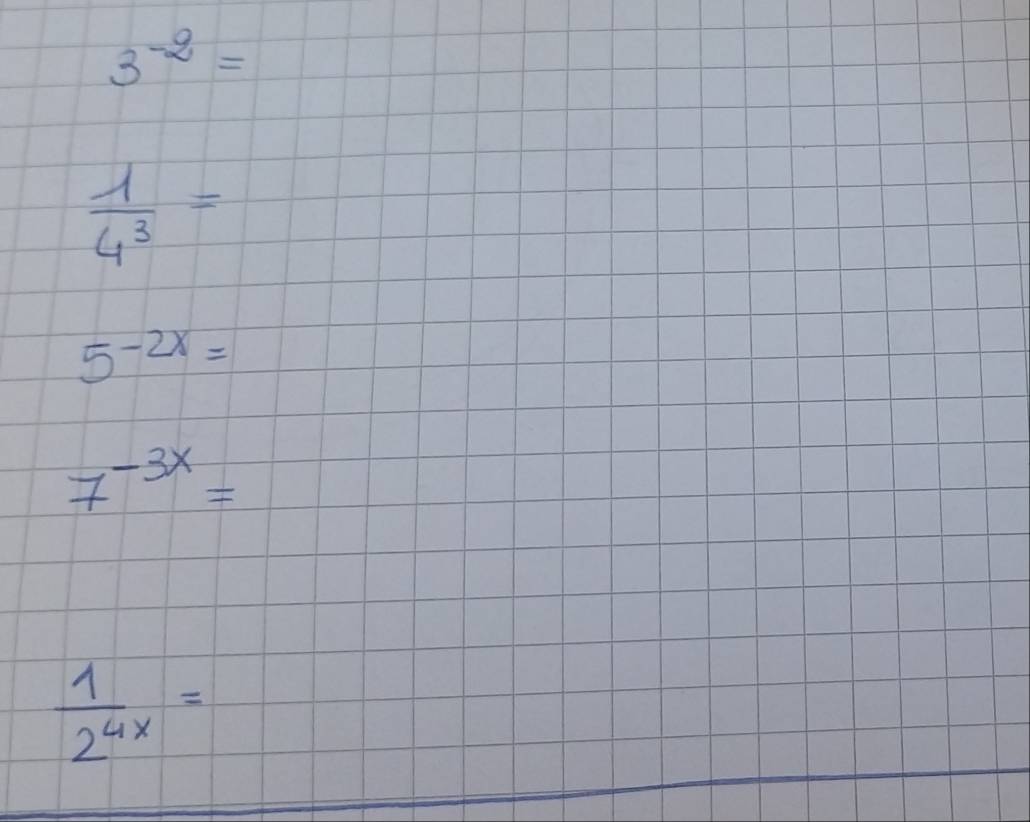 3⁻² =
1/4³ =
5⁻²ˣ =
7⁻³ˣ =
1/2⁴ˣ =